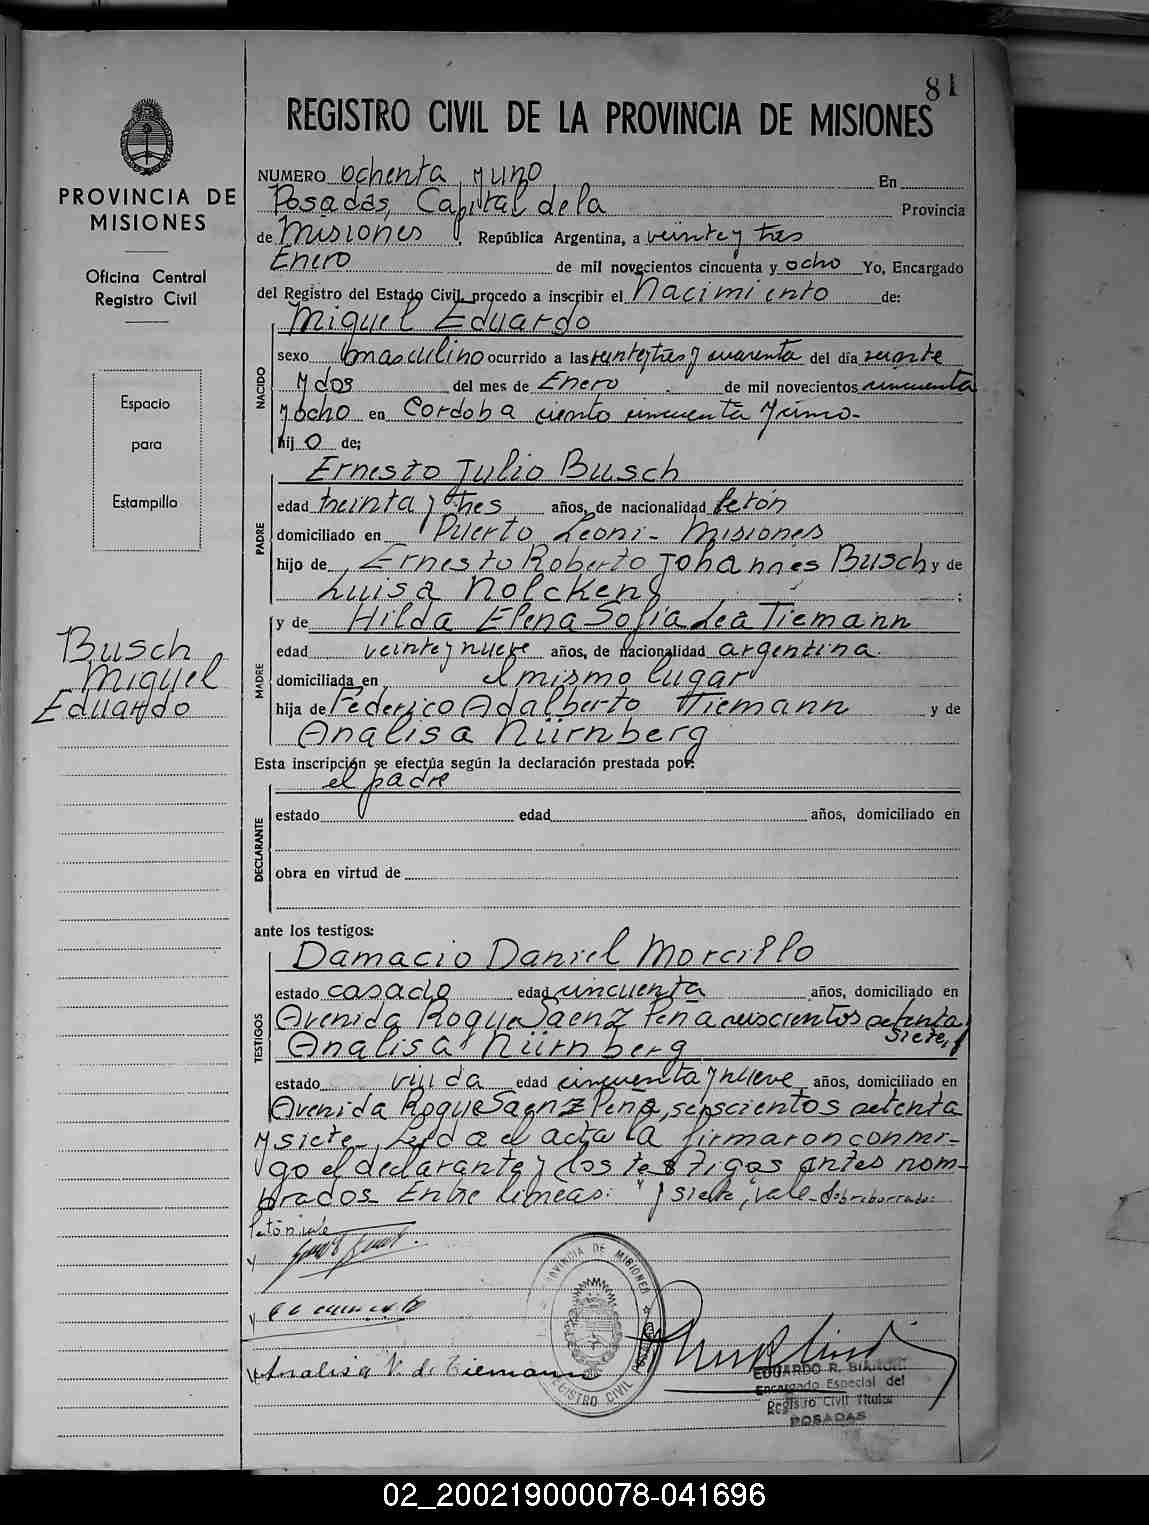 81
REGISTRO CIVIL DE LA PROVINCIA DE MISIONES
PROVINCIA DE
MISIONES
Oficina Central
Registro Civil
Espacio
para
Estampilla
Busch
Miguel
Eduardo
NUMERO ochenta y uno En
Posadas, Capital de la Provincia
de Misiones, República Argentina, a veinte y tres
Enero de mil novecientos cincuenta y ocho Yo, Encargado
del Registro del Estado Civil, procedo a inscribir el Nacimiento de:
NACIDO
Miguel Eduardo
sexo masculino ocurrido a las veinte y tres y cuarenta del día veinte
y dos del mes de Enero de mil novecientos cincuenta
y ocho en Cordoba ciento cincuenta y uno-
hij o de;
PADRE
Ernesto Julio Busch
edad treinta y tres años, de nacionalidad letón
domiciliado en Puerto Leoni - Misiones
hijo de Ernesto Roberto Johannes Busch y de
Luisa Nolcken;
MADRE
y de Hilda Elena Sofía Lea Tiemann
edad veinte y nueve años, de nacionalidad argentina.
domiciliada en el mismo lugar
hija de Federico Adalberto Tiemann y de
Analisa Nürnberg
Esta inscripción se efectúa según la declaración prestada por:
el padre
DECLARANTE
estado edad años, domiciliado en
obra en virtud de
ante los testigos:
TESTIGOS
Damacio Daniel Morcillo
estado casado edad cincuenta años, domiciliado en
Avenida Roque Saenz Peña seiscientos setenta
siete, y
Analisa Nürnberg
estado viuda edad cincuenta y nueve años, domiciliado en
Avenida Roque Saenz Peña, seiscientos setenta
y siete. Leida el acta la firmaron conmi-
go el declarante y los testigos antes nom-
brados. Entre lineas: "y siete", vale - Sobreborrado:
letón, vale
Analisa N. de Tiemann
PROVINCIA DE MISIONES
REGISTRO CIVIL
POSADAS
EDUARDO R.
Encargado Especial del
Registro Civil Titular
POSADAS
02_200219000078-041696